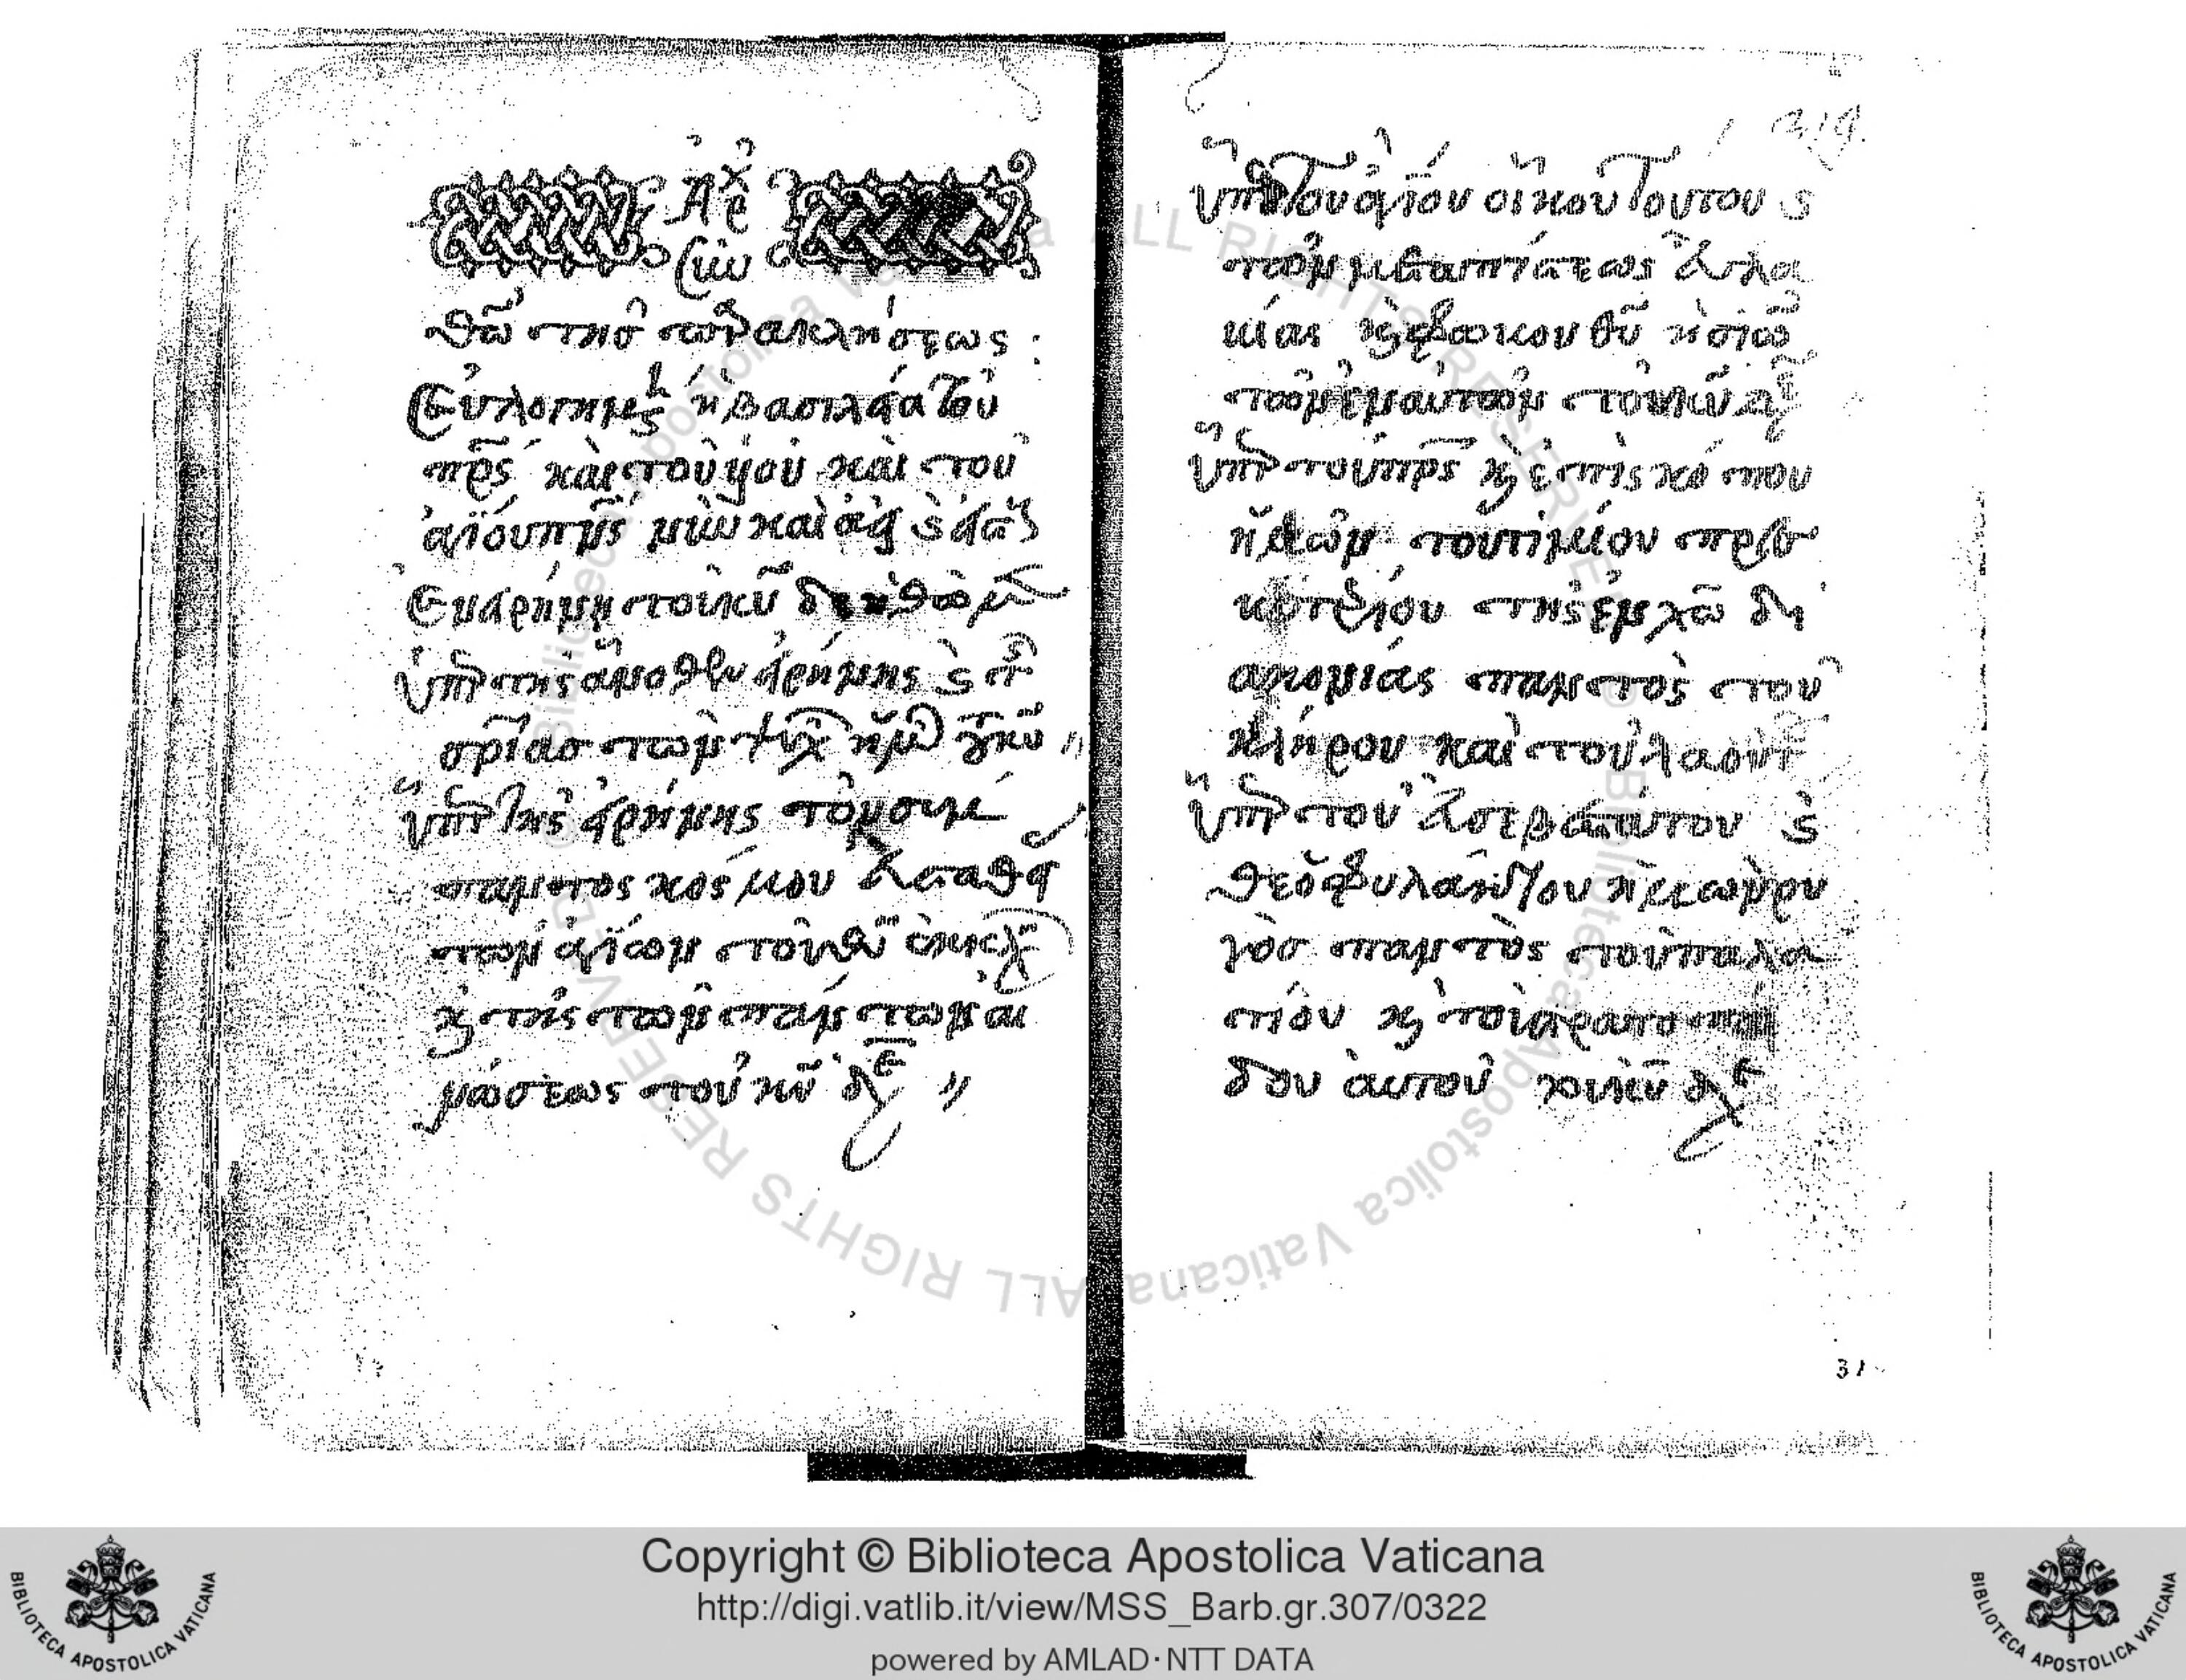 Ἀρχ
σὺν
θῶ τῆς παρακλήσεως :
Εὐλογημέν ἡ βασιλεία τοῦ
πρς καὶ τοῦ υἱοῦ καὶ τοῦ
ἁγίου πνς νῦν καὶ ἀεὶ
Ἐν εἰρήνῃ τοῦ κυ δεηθῶμεν
ὑπὲρ τῆς ἄνωθεν εἰρήνης κ τ
σρίας τῶν ψυχ ἡμῶν τοῦ κυ
ὑπὲρ τῆς εἰρήνης τοῦ συμ
παντος κόσμου εὐσταθεί
τῶν ἁγίων τοῦ θυ ἐκκλ
κ τῆς τῶν πάντων ἑ
νώσεως τοῦ κυ δε
219
ὑπὲρ τοῦ ἁγίου οἴκου τούτου κ
τῶν μετὰ πίστεως εὐλα
είας κ φόβου θυ εἰσιό
τῶν ἐν αὐτῶ τοῦ κυ δε
ὑπὲρ τοῦ πρς κ ἐπισκόπου
ἡμῶν τοῦ τιμίου πρεσ
βυτερίου τῆς ἐν χω δι
ακονίας παντὸς τοῦ
κλήρου καὶ τοῦ λαοῦ τ
ὑπὲρ τοῦ εὐσεβεστάτου κ
θεοφυλάκτου
παντὸς τοῦ παλα
τίου κ τοῦ στρατοπέ
δου αὐτοῦ τοῦ κυ δε
31
Copyright © Biblioteca Apostolica Vaticana
http://digi.vatlib.it/view/MSS_Barb.gr.307/0322
powered by AMLAD·NTT DATA
BIBLIOTECA APOSTOLICA VATICANA
BIBLIOTECA APOSTOLICA VATICANA